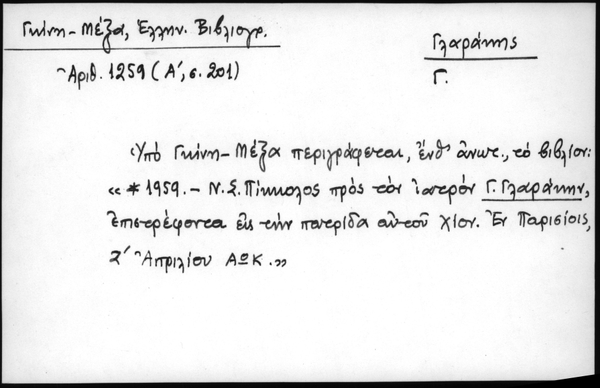 Γκίνη-Μέξα, Ἑλλην. Βιβλιογρ.
Γλαράκης
Ἀριθ. 1259 (Α', σ. 201)
Γ.
Ὑπό Γκίνη-Μέξα περιγράφεται, ἔνθ' ἄνωτ., τό βιβλίον:
«*1959.- Ν.Σ. Πίκκολος πρός τόν ἰατρόν Γ. Γλαράκην,
ἐπιστρέφοντα εἰς τήν πατρίδα αὑτοῦ Χίον. Ἐν Παρισίοις,
Ἀπριλίου ΑΩΚ.»